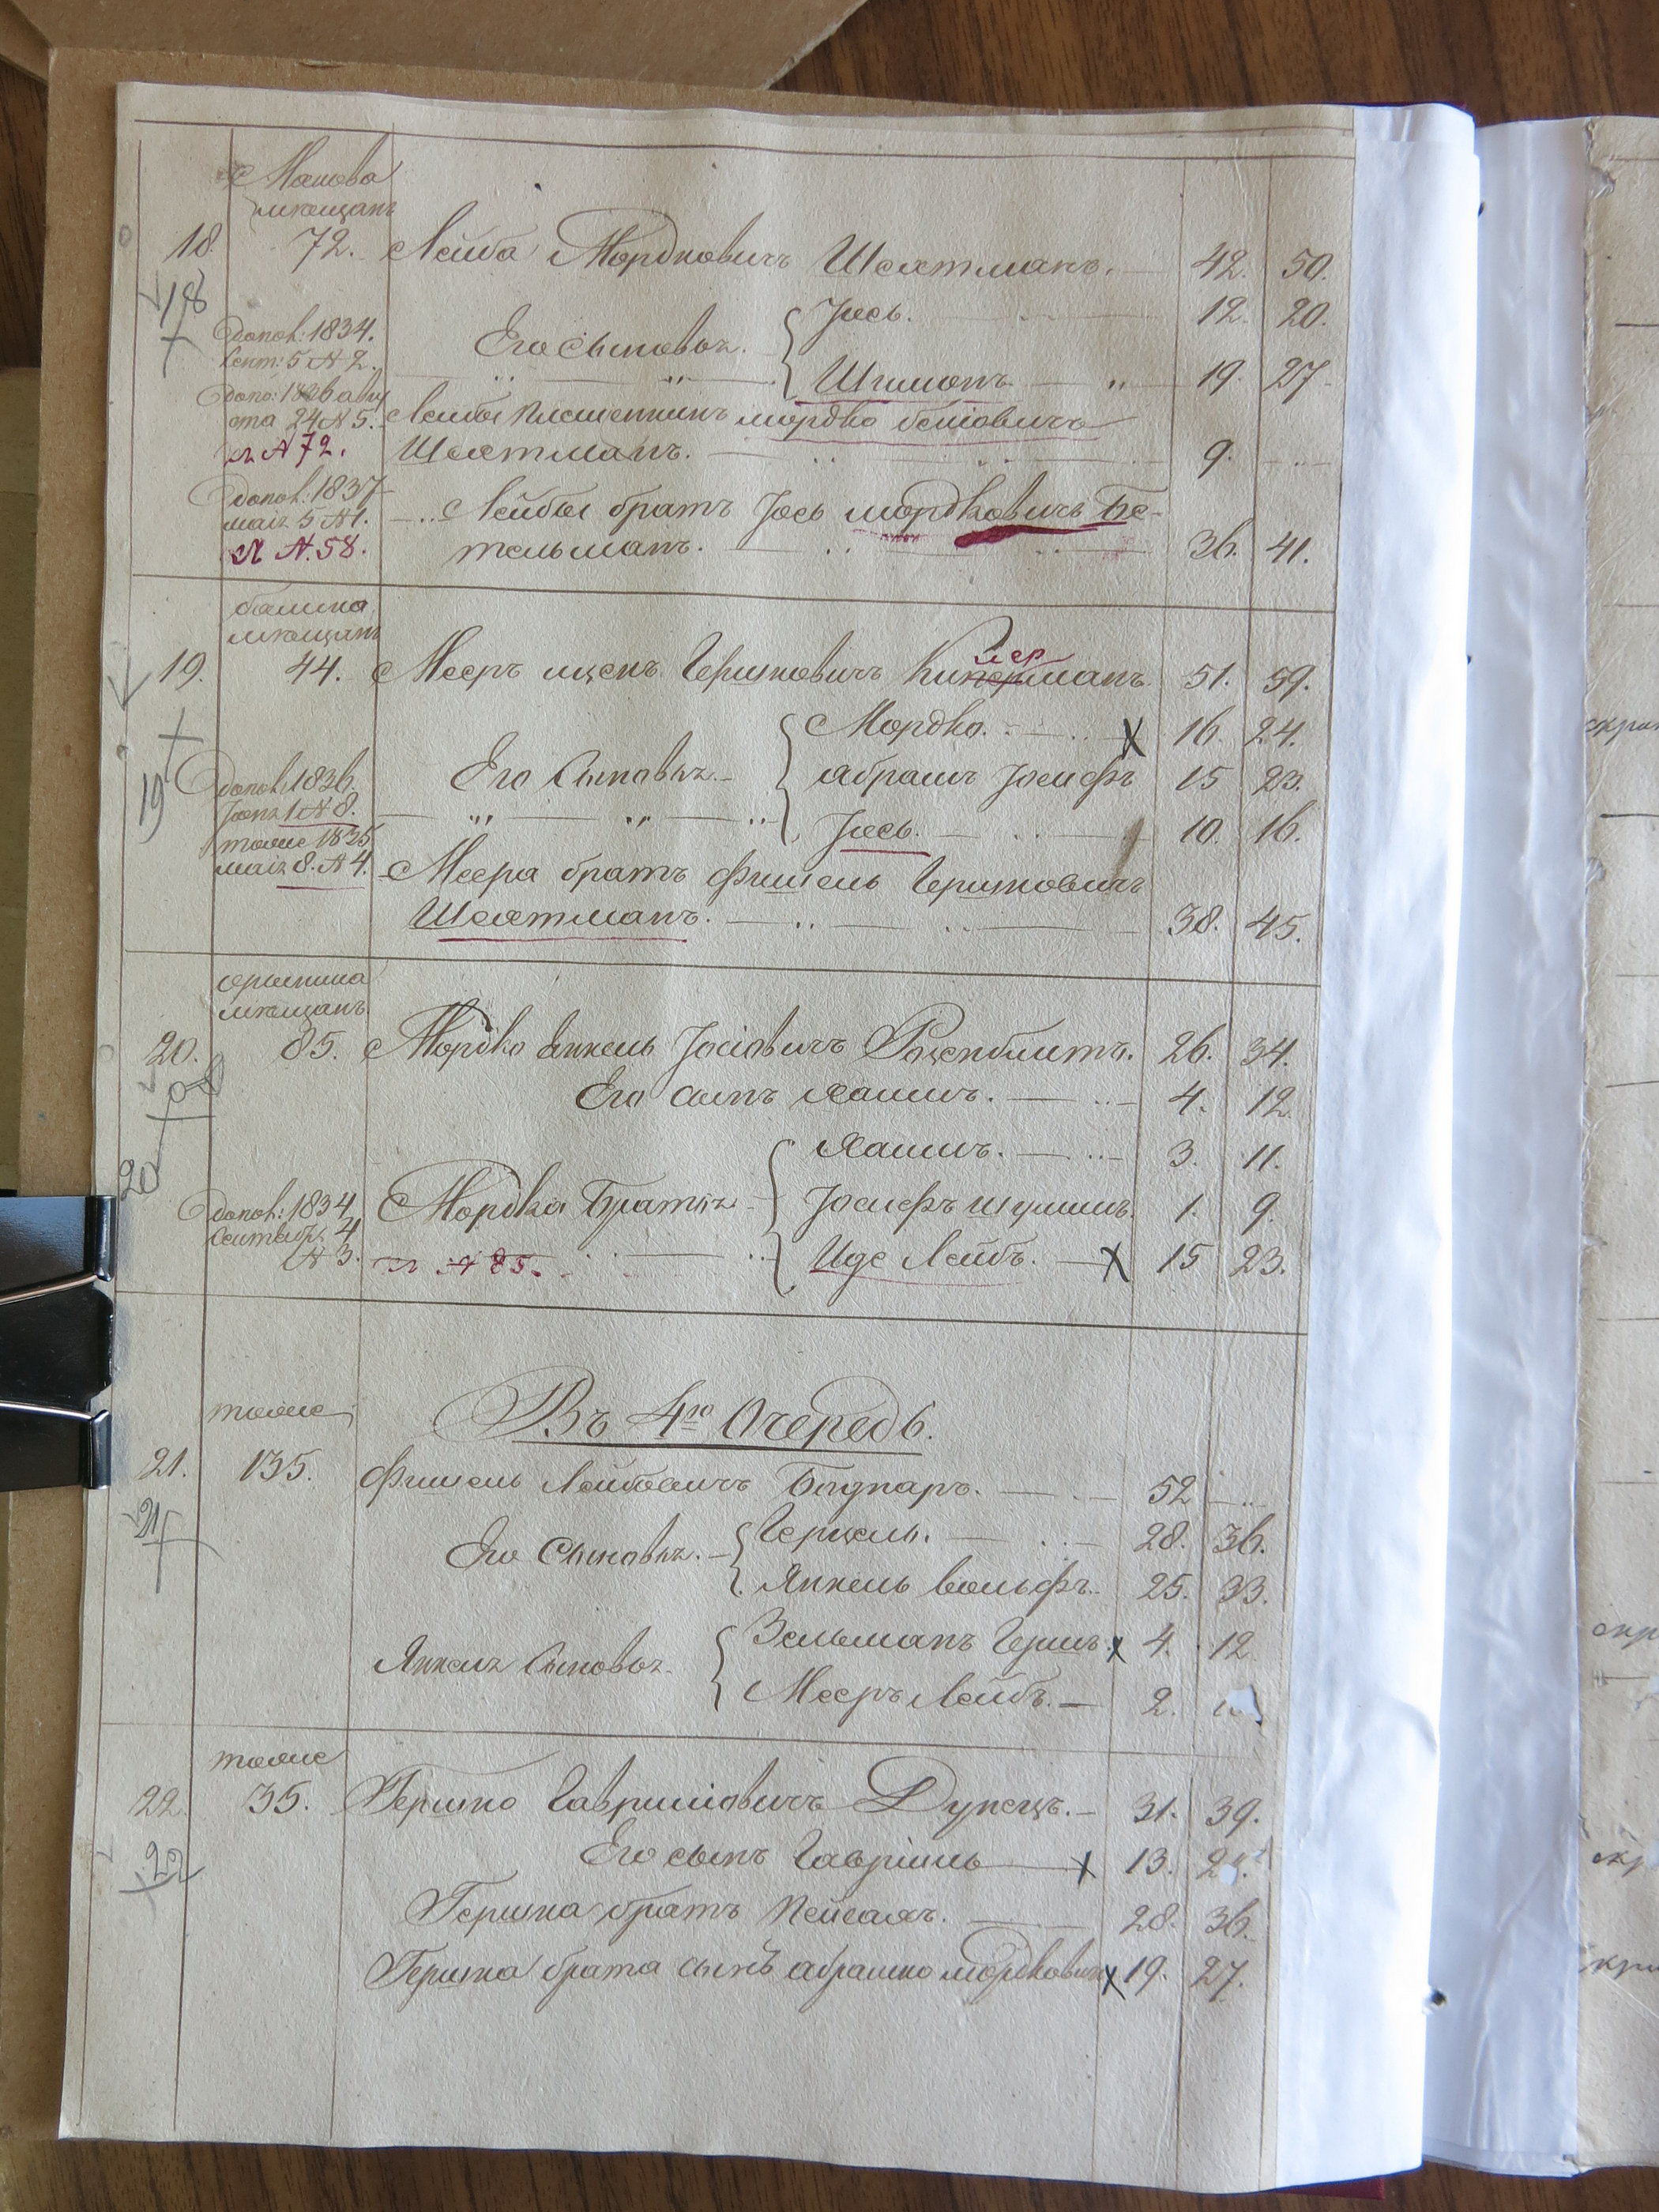 мѣщанъ
18. 72. Лейба Мордковичъ Шехтманъ. 42. 50.
18
Іось. 12. 20.
Допол: 1834.
Его Сыновья.
Сент: 5 № 2.
Шимонъ 19. 27.
Допо: 1836 авгу
ста 24 № 5. Лейбы племенникъ мордко беніовичъ
№ 72. Шехтманъ. 9.
Допол: 1837
Лейбы братъ Іось мордковичъ Бе-
маія 5 № 1.
№. 58. тельманъ. 36. 41.
мѣщанъ
19. 44. Мееръ ицекъ Гершковичъ Киперманъ 51. 59.
Мордко. x 16. 24.
Его Сыновья. Абрамъ Іосифъ 15 23.
19
Допол. 1836.
1 № 8.
Іось. 10. 16.
тоже 1835
маія 8. № 4. Меера братъ Фишель Гершковичъ
Шехтманъ. 38. 45.
мѣщанъ
20. 85. Мордко Янкель Іосіовичъ Розенблитъ. 26. 34.
Его сынъ Хаимъ. 4. 12
20
Хаимъ. 3. 11.
Мордка Братья Іосифъ шулимъ. 1. 9.
Допол: 1834
Сентября 4
№ 3. № 85. Иде Лейбъ. x 15 23.
тоже Въ 4ю Очередь.
21. 135. Фишель Лейбовичъ Боднаръ. 52
21
Герцель. 28. 36.
Его Сыновья.
Янкель Вольфъ. 25. 33.
Зельманъ Гершъ. x 4. 12
Янкеля Сыновья.
Мееръ Лейбъ. 2.
тоже
22. 35. Гершко Гавриловичъ Дунецъ. 31. 39.
22 Его сынъ Гавріилъ x 13.
Гершка братъ Пейсахъ. 28. 36.
Гершка брата сынъ абрамко мордковичъ x 19. 27.